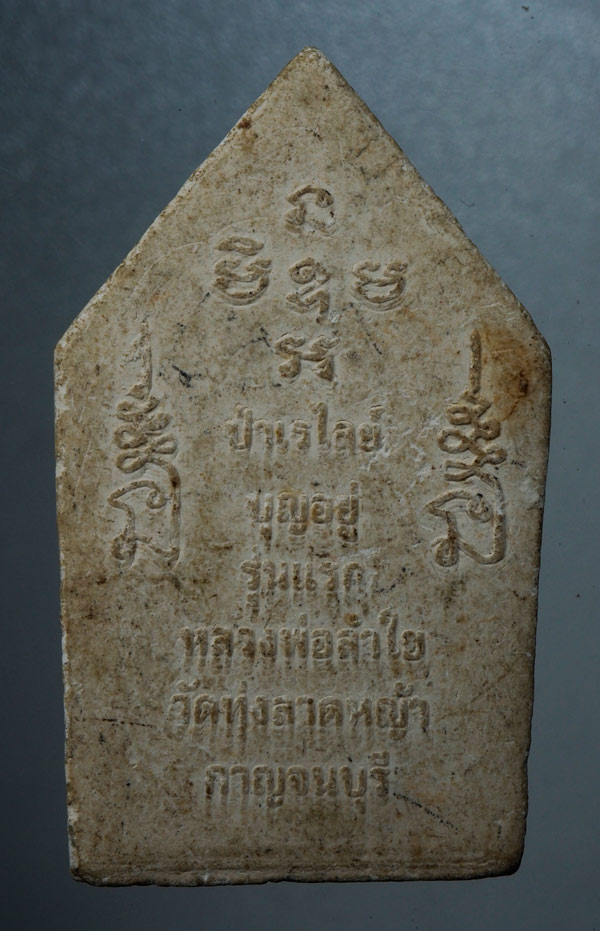 ป่าเรไลย์
บุญอยู่
รุ่นแรก
หลวงพ่อลำใย
วัดทุ่งลาดหญ้า
กาญจนบุรี